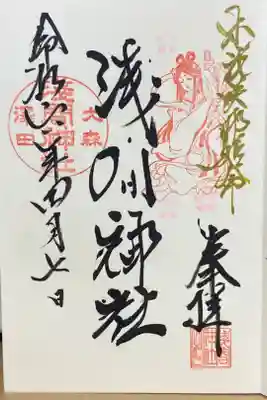 木花咲耶姫命
奉拝
大森
浅間神社
澤田
浅間神社
令和六年四月七日